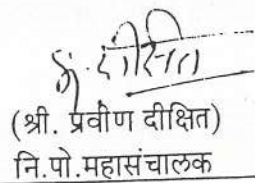 (श्री. प्रवीण दीक्षित)
नि.पो.महासंचालक